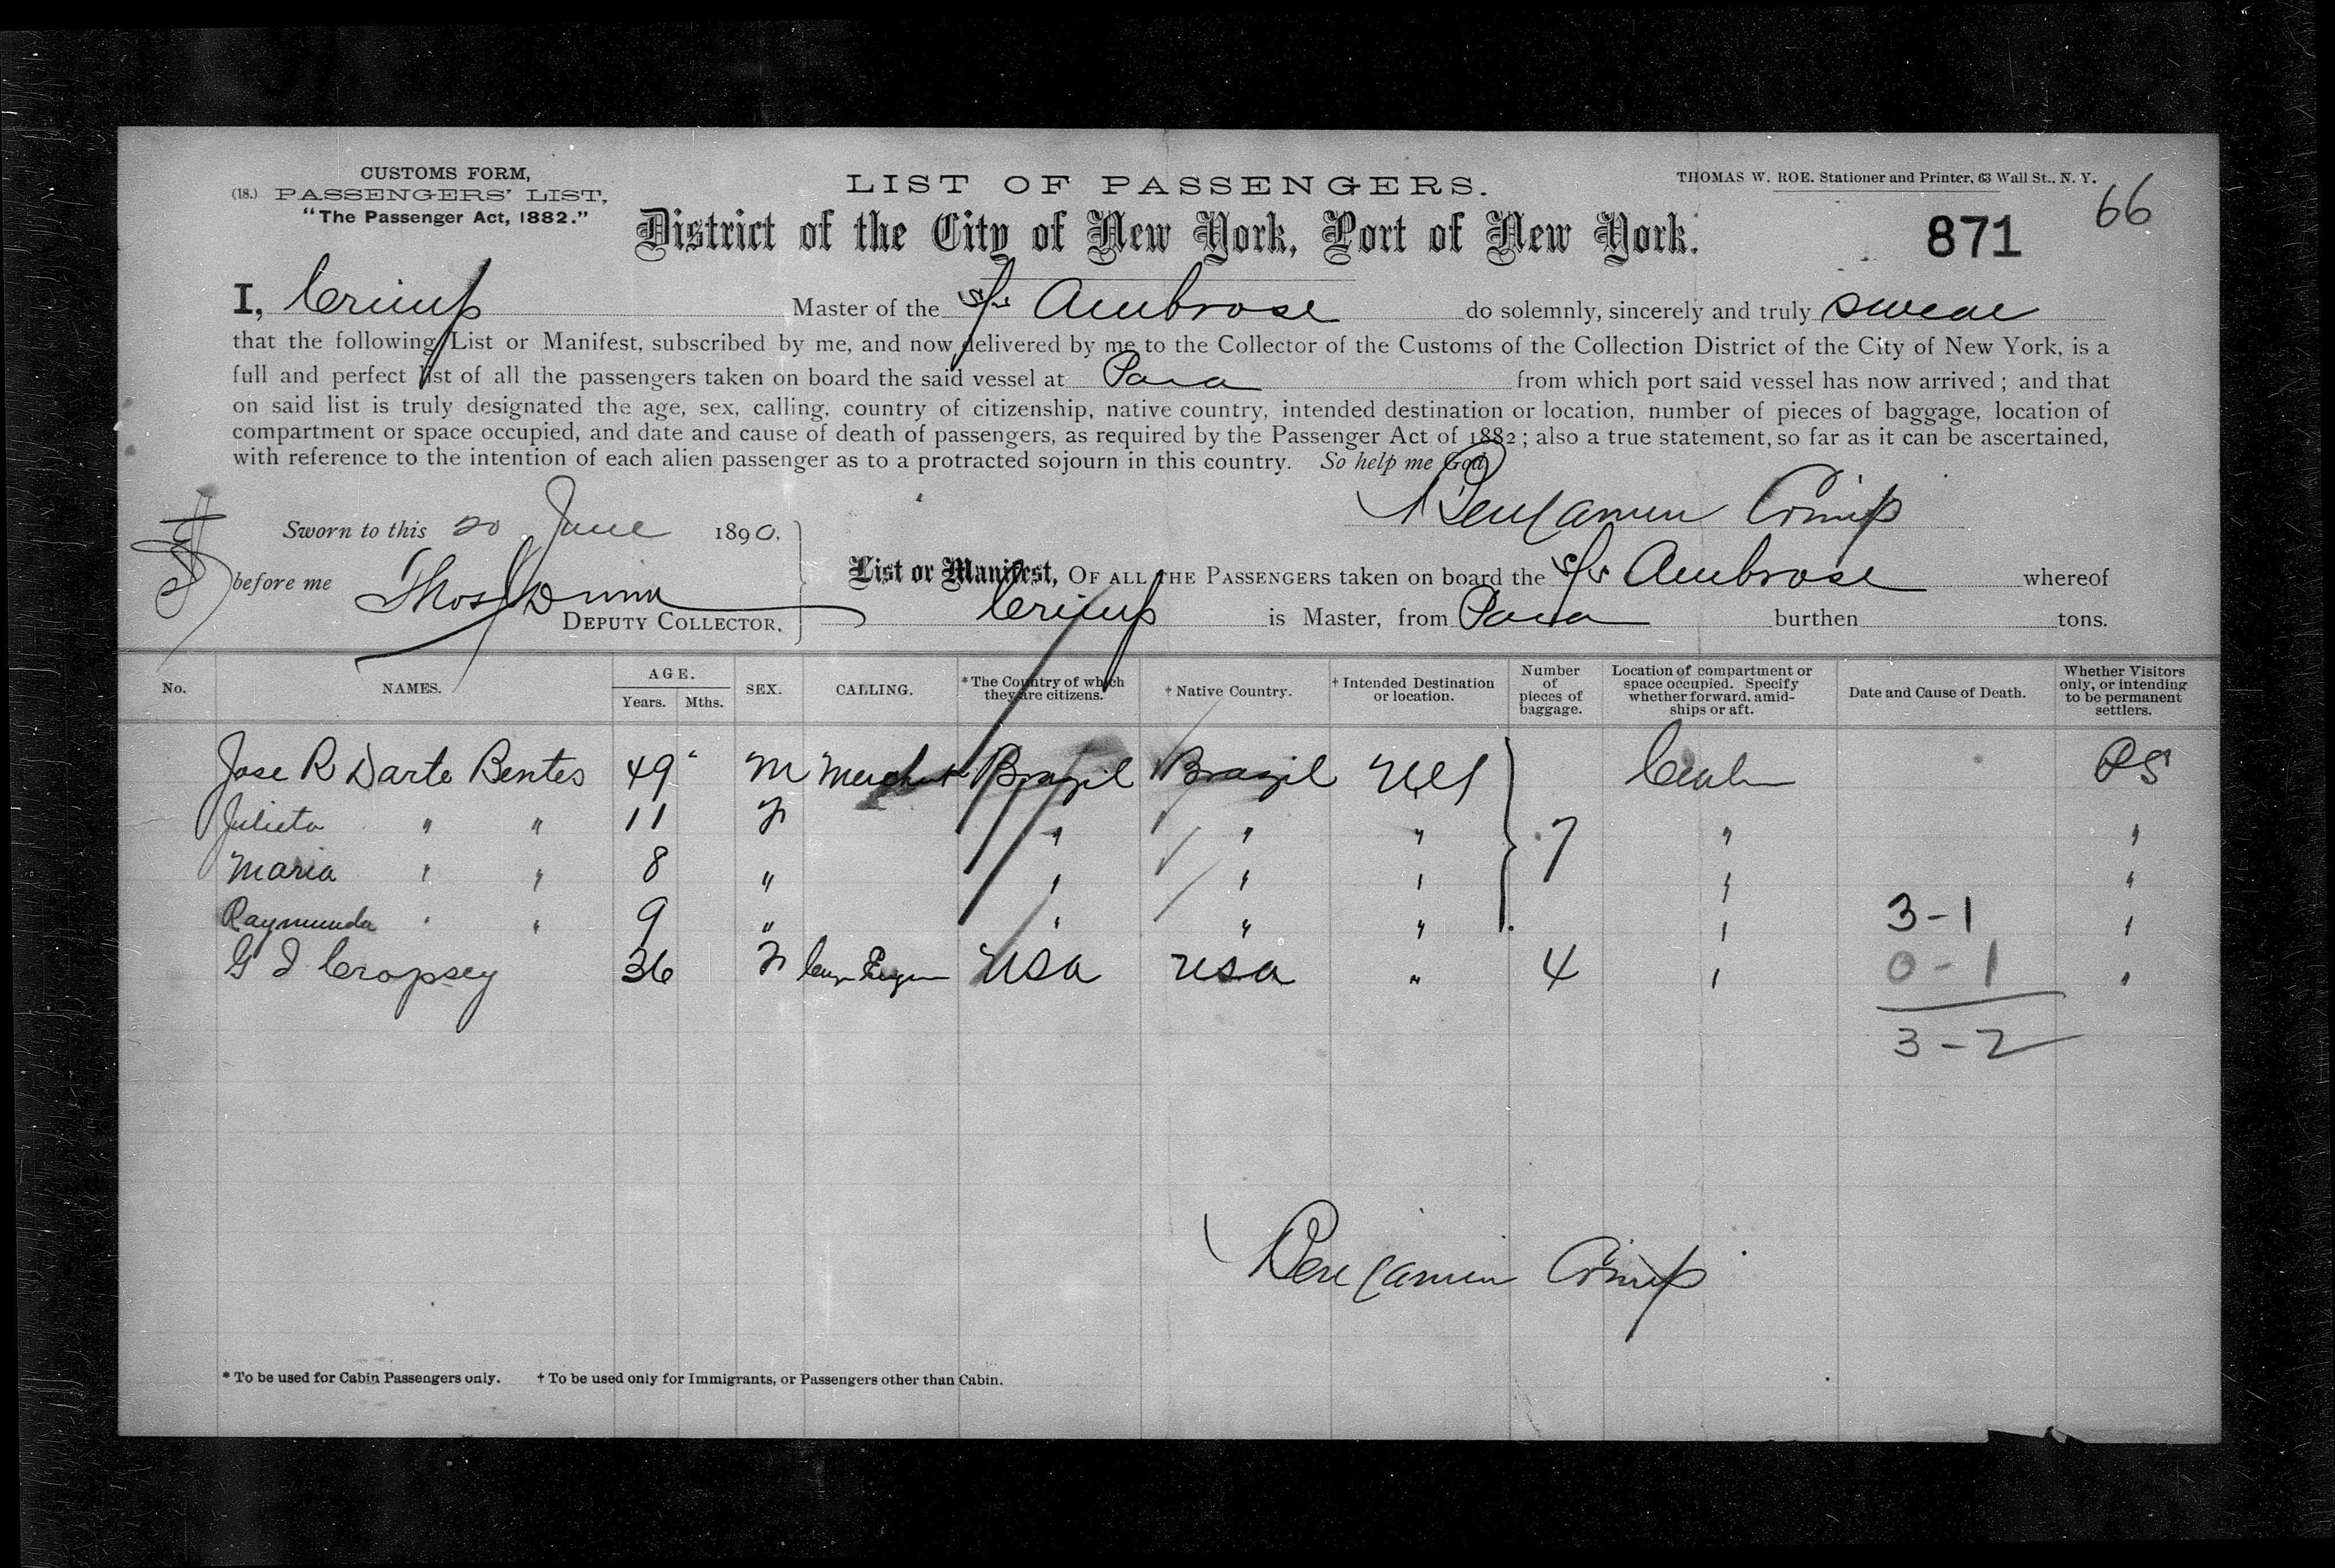 CUSTOMS FORM,
(18.) PASSENGERS' LIST,
"The Passenger Act, 1882."
LIST OF PASSENGERS.
THOMAS W. ROE. Stationer and Printer, 63 Wall St., N. Y.
66
District of the City of New York, Port of New York.
871
I, Crimp Master of the S/s Ambrose do solemnly, sincerely and truly swear
that the following List or Manifest, subscribed by me, and now delivered by me to the Collector of the Customs of the Collection District of the City of New York, is a
full and perfect list of all the passengers taken on board the said vessel at Para from which port said vessel has now arrived; and that
on said list is truly designated the age, sex, calling, country of citizenship, native country, intended destination or location, number of pieces of baggage, location of
compartment or space occupied, and date and cause of death of passengers, as required by the Passenger Act of 1882; also a true statement, so far as it can be ascertained,
with reference to the intention of each alien passenger as to a protracted sojourn in this country. So help me God
Benjamin Crimp
Sworn to this 20 June 1890.
before me Thos Dunn
DEPUTY COLLECTOR.
List or Manifest, OF ALL THE PASSENGERS taken on board the S/s Ambrose whereof
Crimp is Master, from Para burthen tons.
No. NAMES. AGE. Years. Mths. SEX. CALLING. * The Country of which they are citizens. † Native Country. † Intended Destination or location. Number of pieces of baggage. Location of compartment or space occupied. Specify whether forward, amidships or aft. Date and Cause of Death. Whether Visitors only, or intending to be permanent settlers.
Jose R Darte Bentes 49 M Merchant Brazil Brazil Cabin PS
Julieta " " 11 F " " " 7 " "
Maria " " 8 " " " " " "
Raymunda " " 9 " " " " " 3-1 "
G I Cropsey 36 F USA USA " 4 " 0-1 "
3-2
Benjamin Crimp
* To be used for Cabin Passengers only. † To be used only for Immigrants, or Passengers other than Cabin.